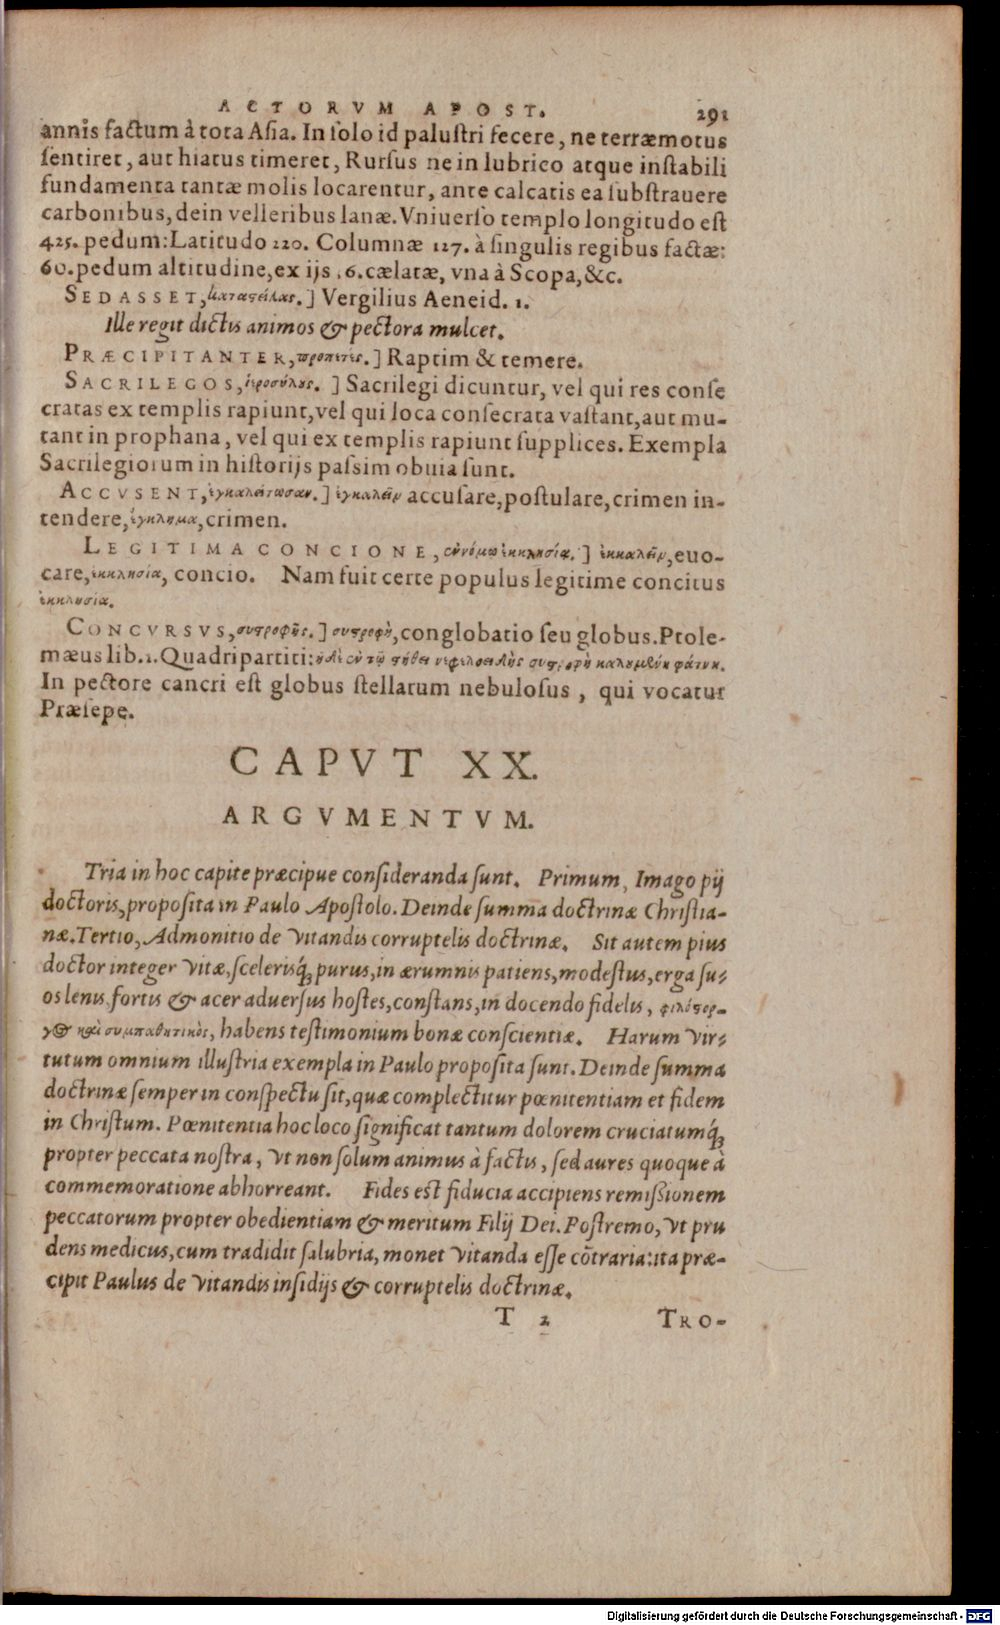 ACTORVM APOST. 291
annis factum à tota Asia. In solo id palustri fecere, ne terræmotus
sentiret, aut hiatus timeret, Rursus ne in lubrico atque instabili
fundamenta tantæ molis locarentur, ante calcatis ea substrauere
carbonibus, dein velleribus lanæ. Vniuerso templo longitudo est
425. pedum: Latitudo 220. Columnæ 127. à singulis regibus factæ:
60. pedum altitudine, ex ijs 6. cælatæ, vna à Scopa, &c.
SEDASSET, καταστείλας.] Vergilius Aeneid. 1.
Ille regit dictis animos & pectora mulcet.
PRÆCIPITANTER, προπετὲς.] Raptim & temere.
SACRILEGOS, ἱεροσύλους.] Sacrilegi dicuntur, vel qui res conse
cratas ex templis rapiunt, vel qui loca consecrata vastant, aut mu-
tant in prophana, vel qui ex templis rapiunt supplices. Exempla
Sacrilegiorum in historijs passim obuia sunt.
ACCVSENT, ἐγκαλείτωσαν.] ἐγκαλεῖν accusare, postulare, crimen in-
tendere, ἔγκλημα, crimen.
LEGITIMA CONCIONE, ἐννόμῳ ἐκκλησίᾳ.] ἐκκαλεῖν, euo-
care, ἐκκλησία, concio. Nam fuit certe populus legitime concitus
ἐκκλησία.
CONCVRSVS, συστροφῆς.] συστροφὴ, conglobatio seu globus. Ptole-
mæus lib. 1. Quadripartiti: ἐν τῷ στήθει νεφελοειδὴς συστροφὴ καλουμένη φάτνη.
In pectore cancri est globus stellarum nebulosus, qui vocatur
Præsepe.
CAPVT XX.
ARGVMENTVM.
Tria in hoc capite præcipue consideranda sunt. Primum, Imago pij
doctoris, proposita in Paulo Apostolo. Deinde summa doctrinæ Christia-
næ. Tertio, Admonitio de vitandis corruptelis doctrinæ. Sit autem pius
doctor integer vitæ, scelerisq́; purus, in ærumnis patiens, modestus, erga su-
os lenis, fortis & acer aduersus hostes, constans, in docendo fidelis, φιλόστορ-
γος καὶ συμπαθητικὸς, habens testimonium bonæ conscientiæ. Harum vir-
tutum omnium illustria exempla in Paulo proposita sunt. Deinde summa
doctrinæ semper in conspectu sit, quæ complectitur pœnitentiam et fidem
in Christum. Pœnitentia hoc loco significat tantum dolorem cruciatumq́;
propter peccata nostra, vt non solum animus à factis, sed aures quoque à
commemoratione abhorreant. Fides est fiducia accipiens remissionem
peccatorum propter obedientiam & meritum Filij Dei. Postremo, vt pru
dens medicus, cum tradidit salubria, monet vitanda esse cõtraria: ita præ-
cipit Paulus de vitandis insidijs & corruptelis doctrinæ.
T 2 TRO-
Digitalisierung gefördert durch die Deutsche Forschungsgemeinschaft - DFG